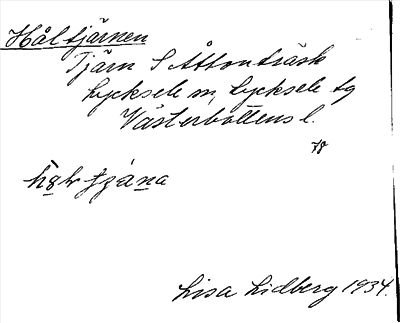 Håltjärnen
Tjärn S Åttonträsk
Lycksele sn, Lycksele tg
Västerbottens l.
Lisa Lidberg 1934.